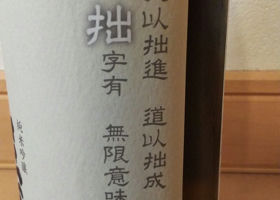 以拙進 道以拙成
拙字有 無限意味
純米吟醸